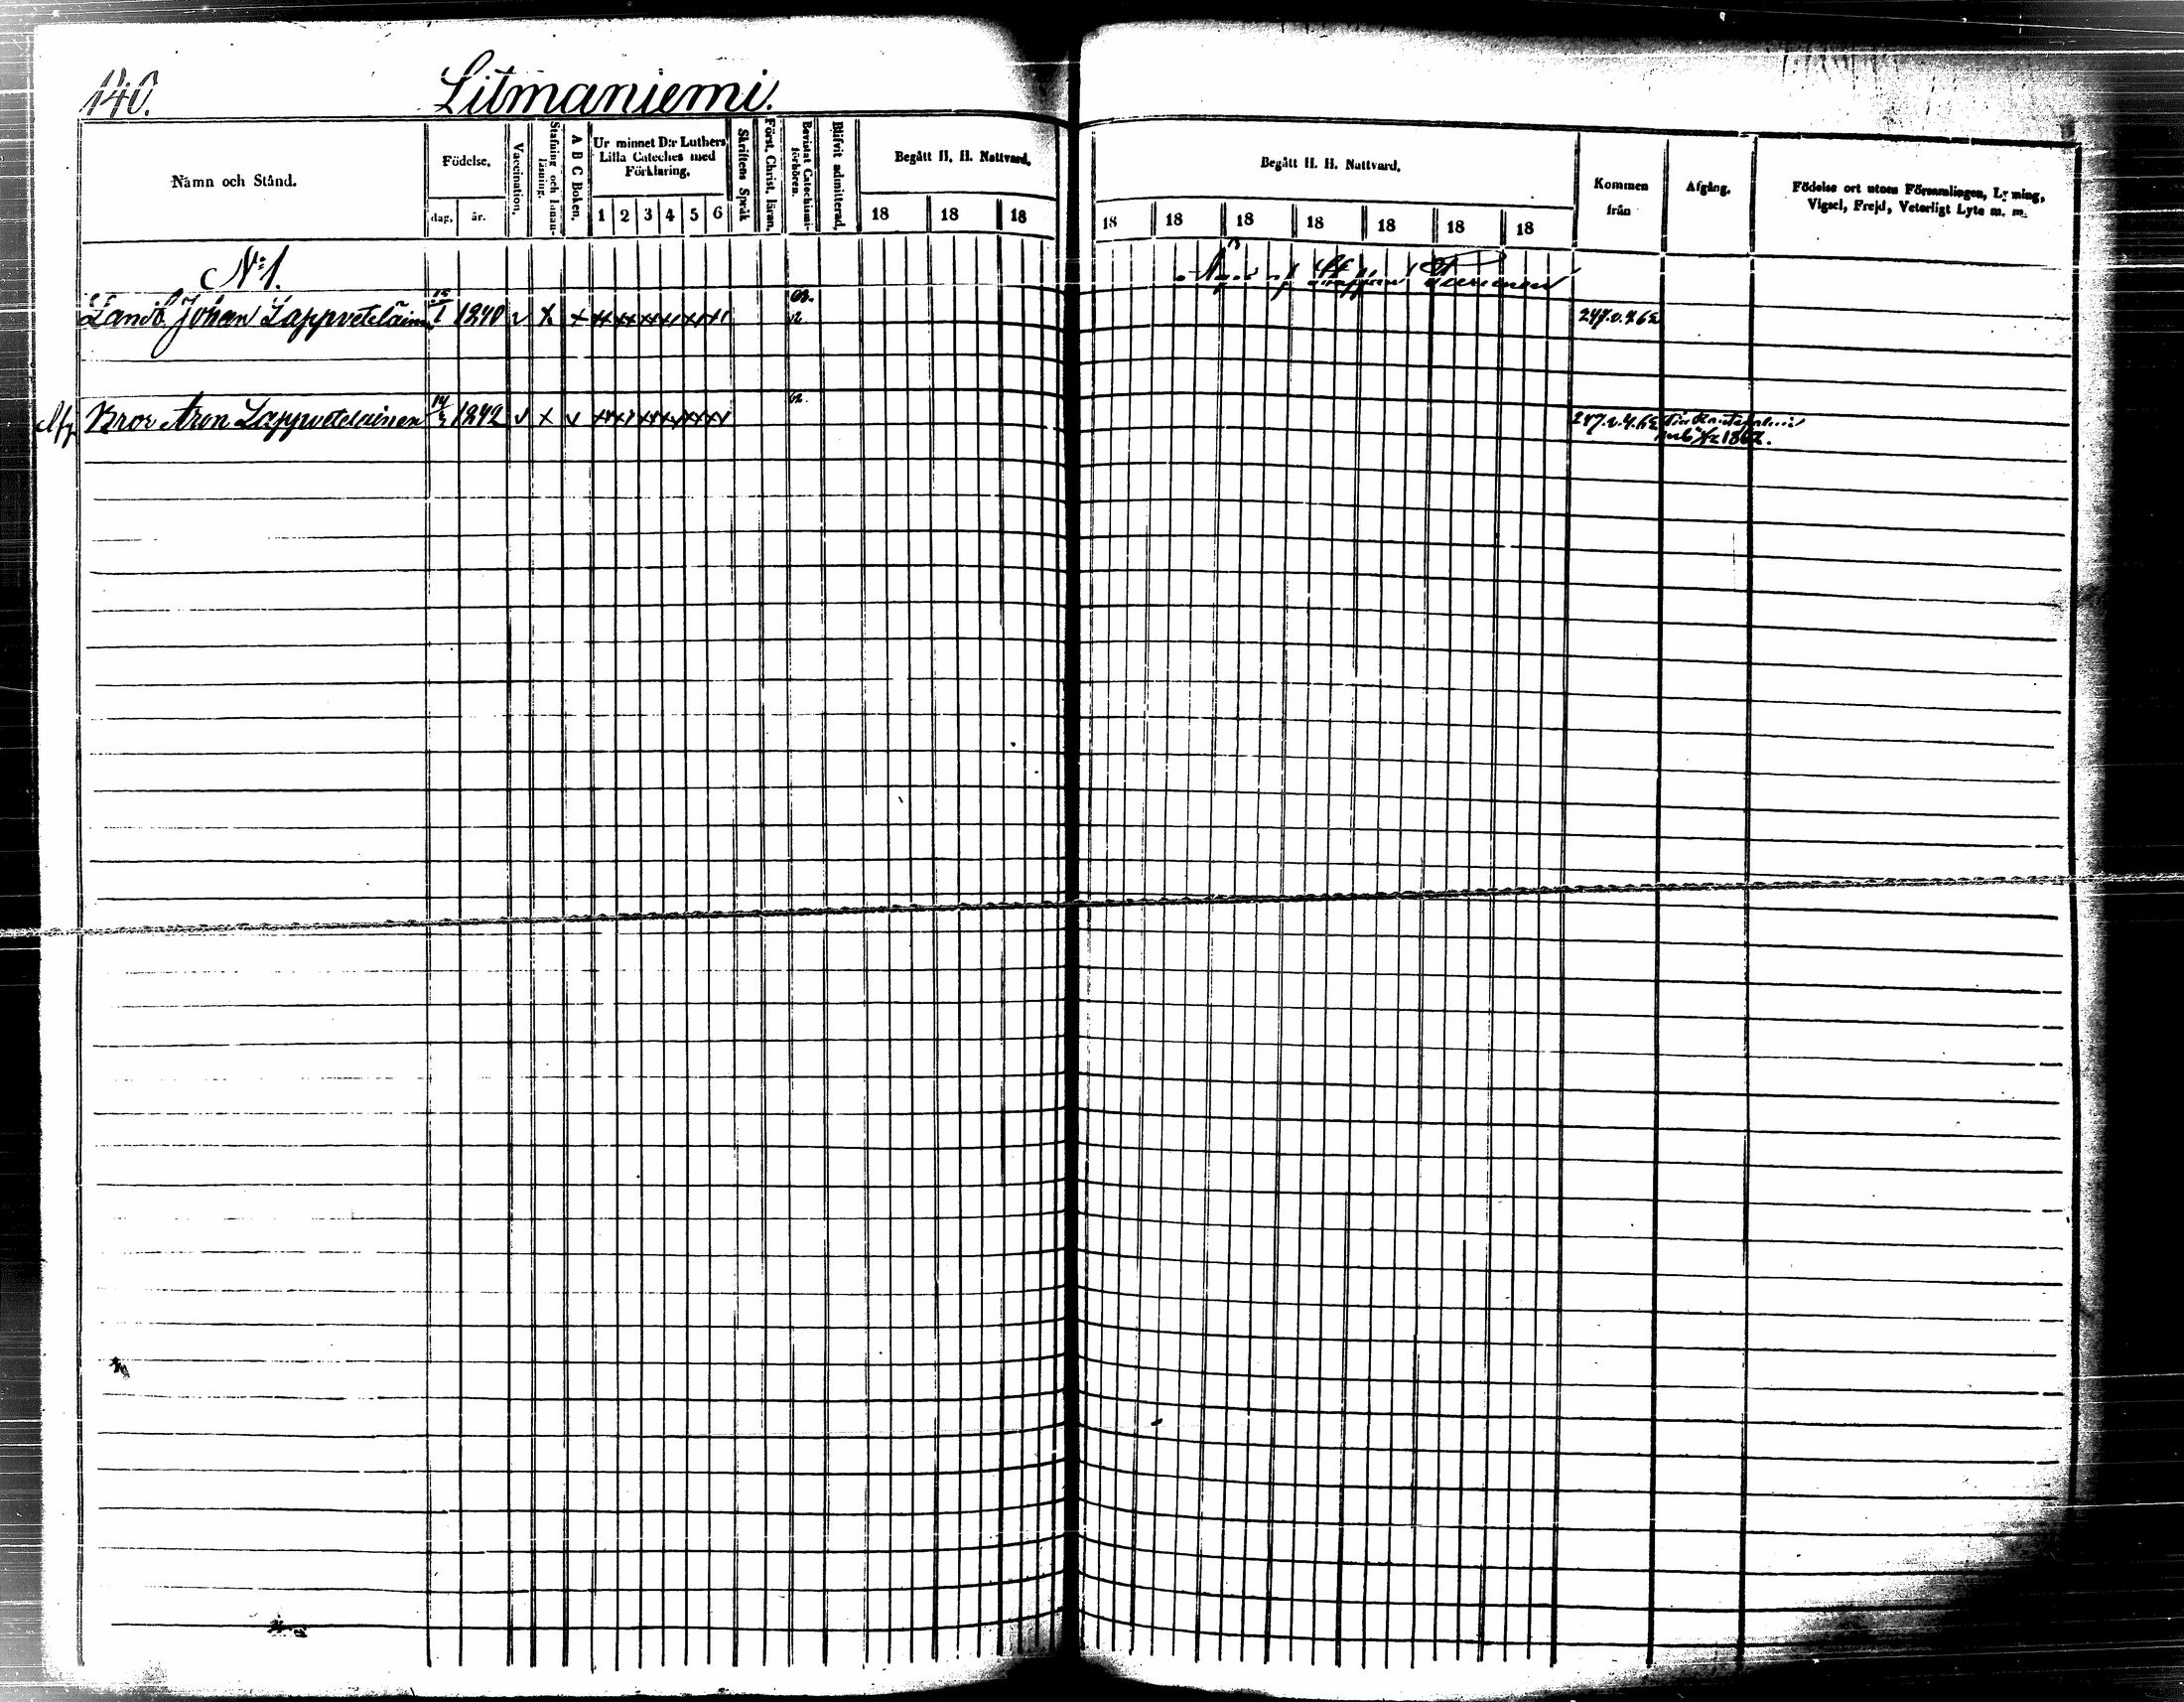 140.
Litmaniemi.
Namn och Stånd.
Födelse.
dag.
år.
Vaccination.
Stafning och Innanläsning.
A B C Boken.
Ur minnet D:r Luthers
Lilla Cateches med
Förklaring.
1 2 3 4 5 6
Skriftens Språk
Först. Christ. läran.
Bevistat Catechismi-
förhören.
Blifvit admitterad.
Begått H. H. Nattvard.
18 18 18
Begått H. H. Nattvard.
18 18 18 18 18 18 18
Kommen
från
Afgång.
Födelse ort utom Församlingen, Lysning,
Vigsel, Frejd, Veterligt Lyte m. m.
N:o 1.
Landb. Johan Lappveteläinen 1840 247.v.4.62
Bror Aron Lappvetelainen 14 1842 62. 247.v.4.62
1862.